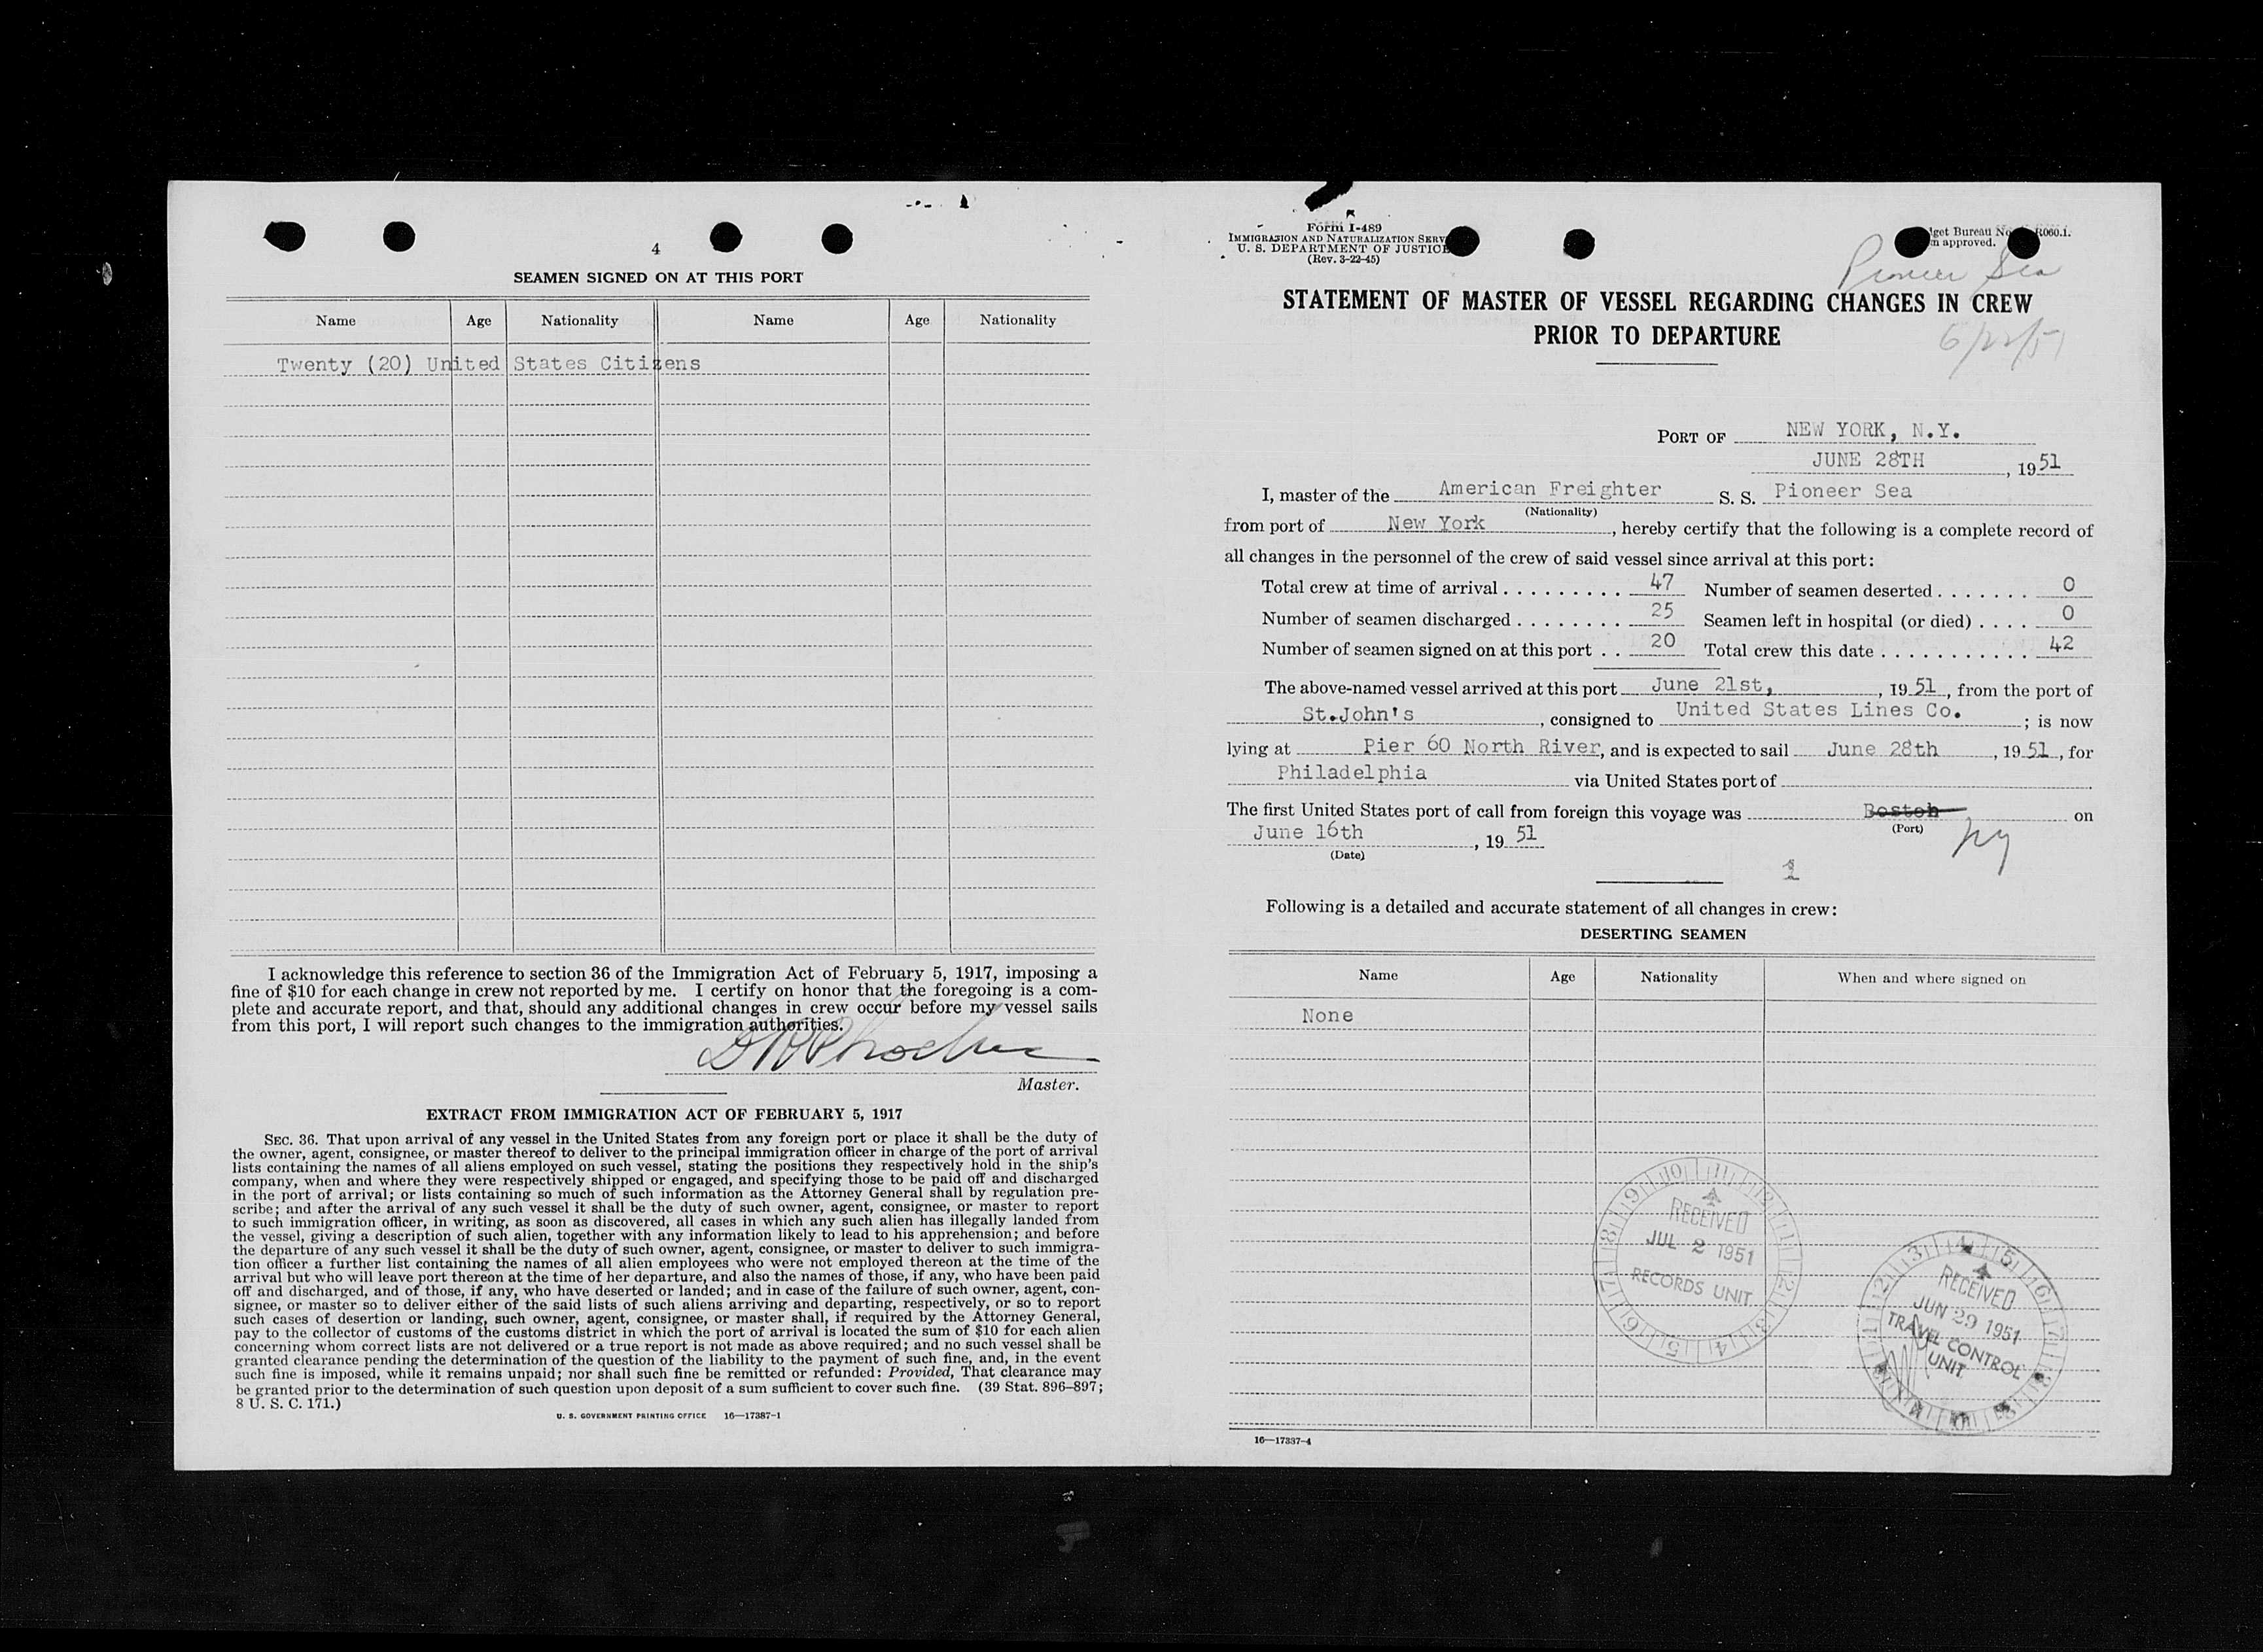 4
SEAMEN SIGNED ON AT THIS PORT
Name Age Nationality Name Age Nationality
Twenty (20) United States Citizens
I acknowledge this reference to section 36 of the Immigration Act of February 5, 1917, imposing a
fine of $10 for each change in crew not reported by me. I certify on honor that the foregoing is a com-
plete and accurate report, and that, should any additional changes in crew occur before my vessel sails
from this port, I will report such changes to the immigration authorities.
Master.
EXTRACT FROM IMMIGRATION ACT OF FEBRUARY 5, 1917
SEC. 36. That upon arrival of any vessel in the United States from any foreign port or place it shall be the duty of
the owner, agent, consignee, or master thereof to deliver to the principal immigration officer in charge of the port of arrival
lists containing the names of all aliens employed on such vessel, stating the positions they respectively hold in the ship's
company, when and where they were respectively shipped or engaged, and specifying those to be paid off and discharged
in the port of arrival; or lists containing so much of such information as the Attorney General shall by regulation pre-
scribe; and after the arrival of any such vessel it shall be the duty of such owner, agent, consignee, or master to report
to such immigration officer, in writing, as soon as discovered, all cases in which any such alien has illegally landed from
the vessel, giving a description of such alien, together with any information likely to lead to his apprehension; and before
the departure of any such vessel it shall be the duty of such owner, agent, consignee, or master to deliver to such immigra-
tion officer a further list containing the names of all alien employees who were not employed thereon at the time of the
arrival but who will leave port thereon at the time of her departure, and also the names of those, if any, who have been paid
off and discharged, and of those, if any, who have deserted or landed; and in case of the failure of such owner, agent, con-
signee, or master so to deliver either of the said lists of such aliens arriving and departing, respectively, or so to report
such cases of desertion or landing, such owner, agent, consignee, or master shall, if required by the Attorney General,
pay to the collector of customs of the customs district in which the port of arrival is located the sum of $10 for each alien
concerning whom correct lists are not delivered or a true report is not made as above required; and no such vessel shall be
granted clearance pending the determination of the question of the liability to the payment of such fine, and, in the event
such fine is imposed, while it remains unpaid; nor shall such fine be remitted or refunded: Provided, That clearance may
be granted prior to the determination of such question upon deposit of a sum sufficient to cover such fine. (39 Stat. 896–897;
8 U. S. C. 171.)
U. S. GOVERNMENT PRINTING OFFICE 16—17387-1
Form I-489
IMMIGRATION AND NATURALIZATION SERV
U. S. DEPARTMENT OF JUSTICE
(Rev. 3-22-45)
get Bureau No. R060.1.
m approved.
Pioneer Sea
STATEMENT OF MASTER OF VESSEL REGARDING CHANGES IN CREW
PRIOR TO DEPARTURE
PORT OF NEW YORK, N.Y.
JUNE 28TH, 1951
I, master of the American Freighter S. S. Pioneer Sea
(Nationality)
from port of New York, hereby certify that the following is a complete record of
all changes in the personnel of the crew of said vessel since arrival at this port:
Total crew at time of arrival . . . . . . . . . 47 Number of seamen deserted . . . . . . . 0
Number of seamen discharged . . . . . . . . 25 Seamen left in hospital (or died) . . . . 0
Number of seamen signed on at this port . . 20 Total crew this date . . . . . . . . . . . 42
The above-named vessel arrived at this port June 21st, , 1951, from the port of
St.John's, consigned to United States Lines Co. ; is now
lying at Pier 60 North River, and is expected to sail June 28th, 1951, for
Philadelphia via United States port of
The first United States port of call from foreign this voyage was Boston on
(Port) ny
June 16th, 1951
(Date)
1
Following is a detailed and accurate statement of all changes in crew:
DESERTING SEAMEN
Name Age Nationality When and where signed on
None
RECEIVED
JUL 2 1951
RECORDS UNIT
RECEIVED
JUN 29 1951
TRAVEL CONTROL
UNIT
16—17387-4